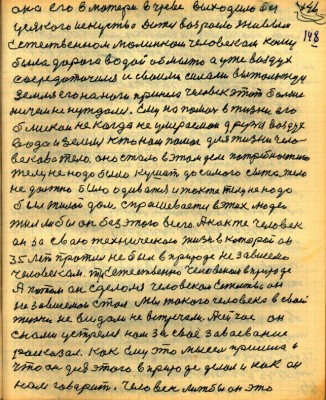 она его в матери в чреве выходило без
всякого искуство Дитя возросло живым
Естественном маминкой человекам кому
была дорога водой обмыто а уже воздух
сосредоточился и своими силами вытолкнул
Земля его на ноги приняла человек этот больше
ничем не нуждался. Ему по помощ в жизни его
близкие не когда не умираемои друзья воздух
вода и земля кто нам помог для жизни чело
века его тело. оно стало в этом деле потребностию
телу не надо было кушат до самого сыта тело
не должно было одиватся и также телу не надо
был жилой дом, спрашевается в тех людей
жил ли бы он без этого всего. А как те человек
он за сваю техническою жизнь в которой он
35 лет прожил не был в природе не зависемо
человекам. Естественно человеком в природе
А потом он сделался человекам
не зависемои стал мы такого человека в свой
жизни не видели не встречали. А сичас он
с нами устрелся нам за своё завоевание
рассказал. Как ему это мысель пришла и
что он для этого в природе делал и как он
нам говарит. Человек жил бы он это
148